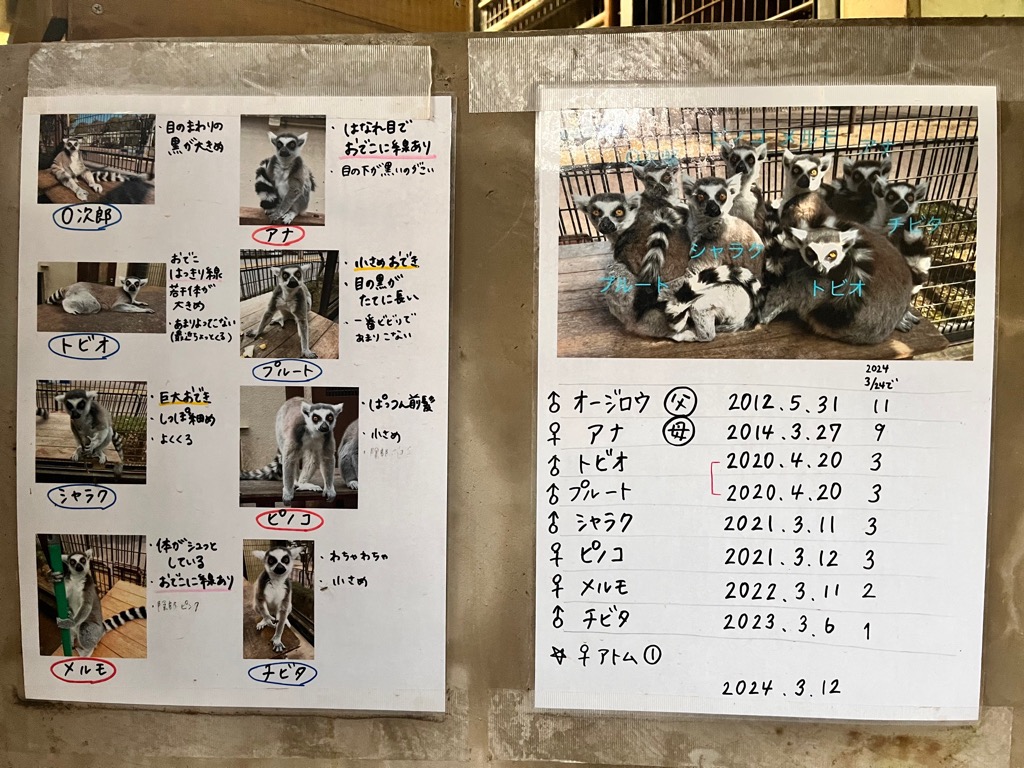 ・目のまわりの
黒が大きめ
O次郎
・はなれ目で
おでこに線あり
・目の下が黒いのがこい
アナ
おでこ
はっきり線
若干体が
大きめ
・あまりよってこない
(最近ちょってくる)
トビオ
・小さめおでき
・目の黒が
たてに長い
・一番ビビりで
あまりこない
プルート
・巨大おでき
・しっぽ細め
・よくくる
シャラク
・ぱっつん前髪
・小さめ
ピノコ
・体がシュッと
している
・おでこに線あり
・陰部ピンク
メルモ
・わちゃわちゃ
・小さめ
チビタ
ピノコ
メルモ
アナ
チビタ
シャラク
プルート
トビオ
2024
3/24で
♂ オージロウ 父 2012.5.31 11
♀ アナ 母 2014.3.27 9
♂ トビオ 2020.4.20 3
♂ プルート 2020.4.20 3
♂ シャラク 2021.3.11 3
♀ ピノコ 2021.3.12 3
♀ メルモ 2022.3.11 2
♂ チビタ 2023.3.6 1
☆ ♀ アトム ①
2024.3.12